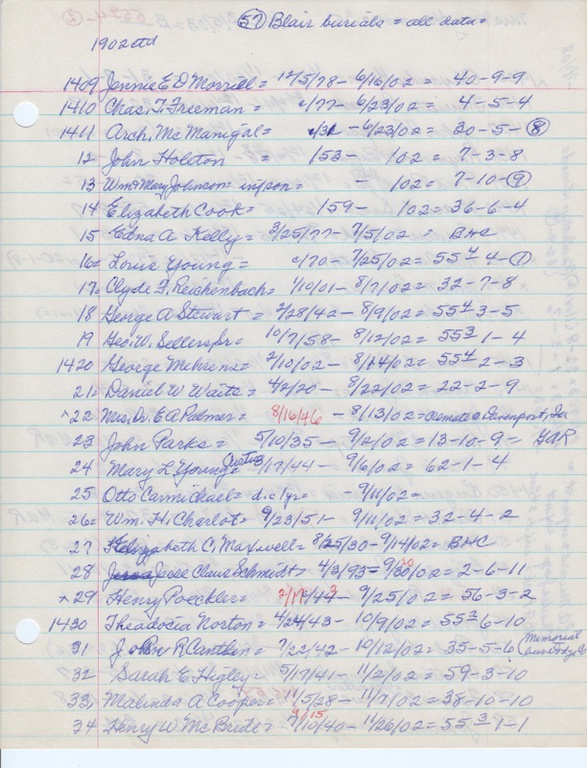 (57) Blair burials = all data =
1902 ctd
1409 Jennie E D Morrill = 12/5/78 - 6/16/02 = 40-9-9
1410 Chas. T. Freeman = c/77 - 6/23/02 = 4-5-4
1411 Arch. McManigal = c/31 - 6/23/02 = 20-5-(8)
12 John Holston = 153 - 102 = 7-3-8
13 Wm & Mary Johnson = inf son = - 102 = 7-10-(9)
14 Elizabeth Cook = 159 - 102 = 36-6-4
15 Edna A Kelly = 3/25/77 - 7/5/02 = BHC
16 = Louie Young = c/70 - 7/25/02 = 55 4 - 4 - (1)
17 = Clyde F. Reichenbach = 1/10/01 - 8/7/02 = 32-7-8
18 George A Stewart = 2/28/42 - 8/9/02 = 55 4 3-5
19 Geo. W. Sellers Sr = 10/7/58 - 8/12/02 = 55 3 1-4
1420 George Mehrens = 2/10/02 - 8/14/02 = 55 4 2-3
21 = Daniel W Waite = 4/2/20 - 8/22/02 = 22-2-9
x 22 Mrs. Dr. E A Palmer = 8/16/46 - 8/13/02 = cremate @ Davenport, Ia
23 John Parks = 5/10/35 - 9/2/02 = 13-10-9 - GAR
24 Mary L Young Curtis 3/17/44 - 9/6/02 = 62-1-4
25 Otto Carmichael = d.c 1yr = - 9/11/02 =
26 = Wm. H. Cherlot = 9/23/51 - 9/11/02 = 32-4-2
27 Elizabeth C. Maxwell = 8/25/30 - 9/14/02 = BHC
28 Jesse Claus Schmidt = 4/3/93 = 9/20/02 = 2-6-11
x 29 Henry Poeckler = 2/17/43 - 9/25/02 = 56-3-2
1430 Theadocia Norton = 4/24/43 - 10/9/02 = 55 3 6-10
31 John R Cantlin = 7/22/42 - 10/12/02 = 35-5-6 (Memorial
32 Sarah E Higley = 5/17/41 - 11/2/02 = 59-3-10
33, Malinda A Cooper = 11/5/28 - 11/7/02 = 38-10-10
34 Henry W McBride = 9/10/40 - 11/26/02 = 55 3 1-1